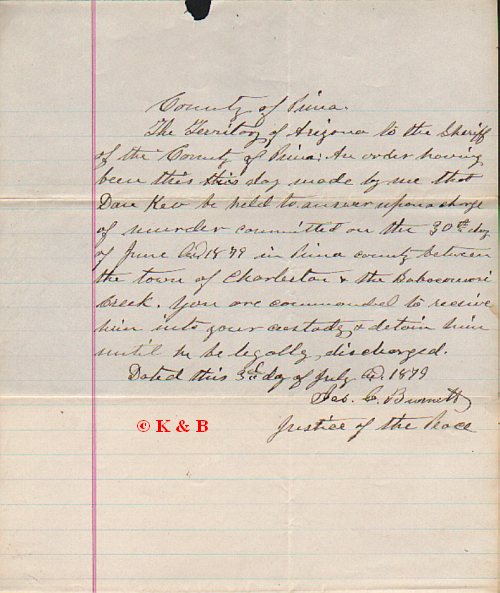 County of Pima.
The Territory of Arizona to the Sheriff
of the County of Pima: An order having
been this this day made by me that
Dan Kew be held to answer upon a charge
of murder committed on the 30th day
of June A.D. 1879 in Pima county between
the town of Charleston & the Babocomori
Creek. You are commanded to receive
him into your custody, & detain him
until he be legally, discharged.
Dated this 3d day of July A.D. 1879
Jas. C. Burnett
Justice of the Peace
© K & B